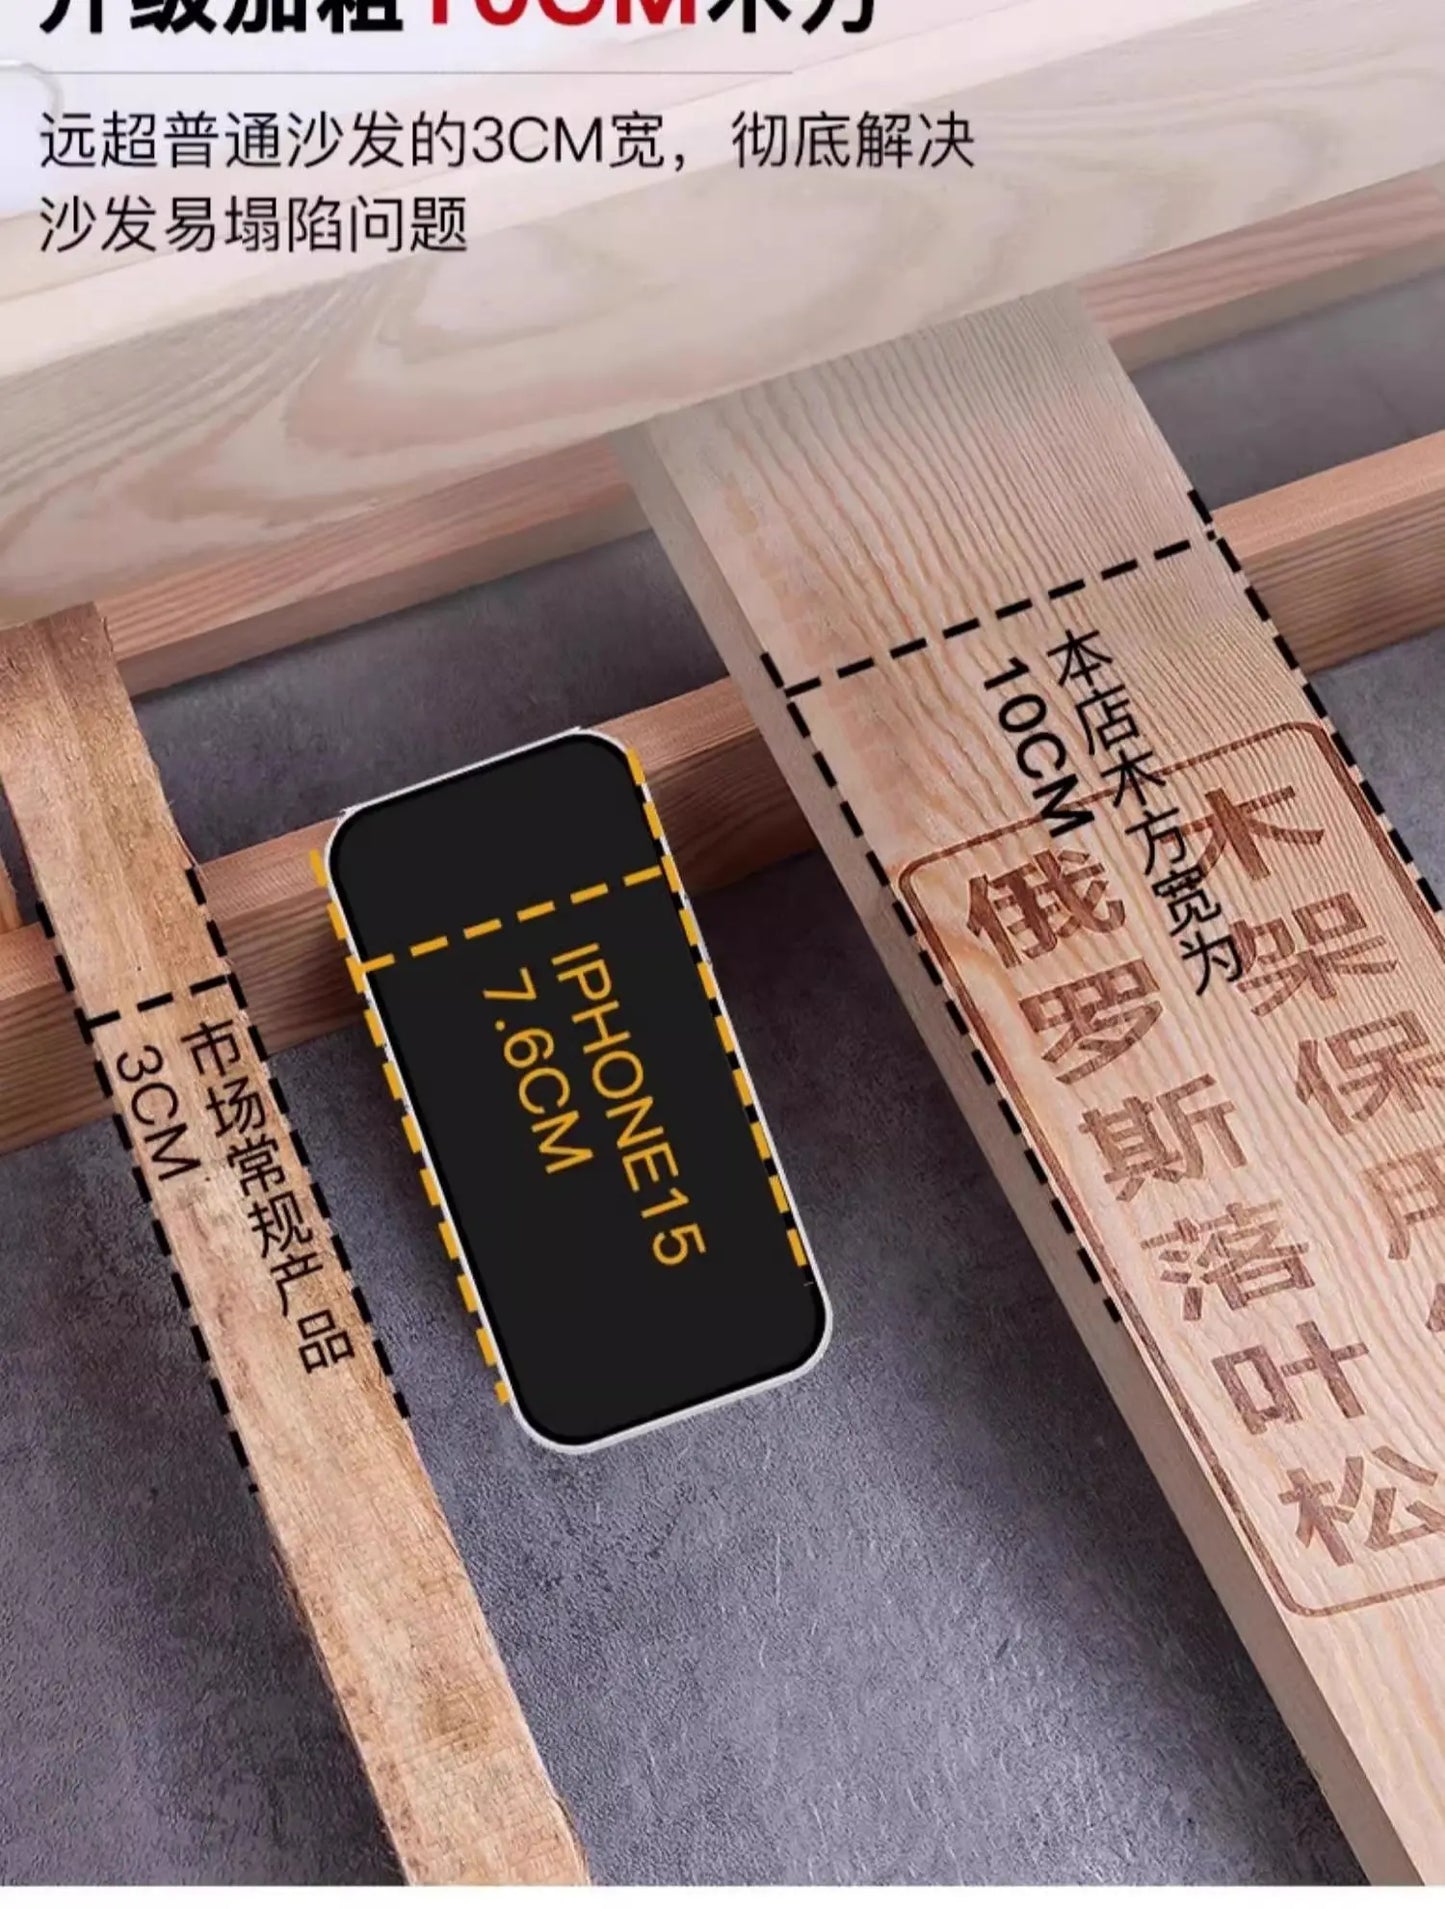 升级加粗10CM木方
远超普通沙发的3CM宽，彻底解决
沙发易塌陷问题
本店木方宽为
10CM
IPHONE15
7.6CM
市场常规产品
3CM
木架保用
俄罗斯落叶松